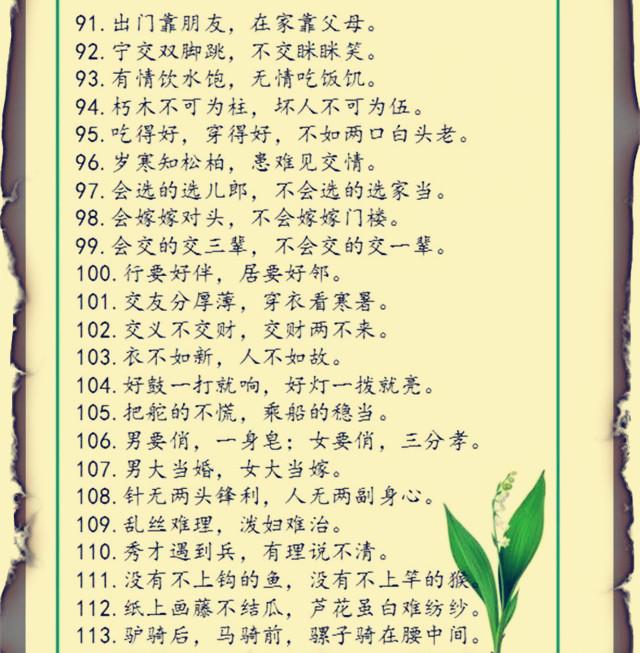 91.出门靠朋友，在家靠父母。
92.宁交双脚跳，不交眯眯笑。
93.有情饮水饱，无情吃饭饥。
94.朽木不可为柱，坏人不可为伍。
95.吃得好，穿得好，不如两口白头老。
96.岁寒知松柏，患难见交情。
97.会选的选儿郎，不会选的选家当。
98.会嫁嫁对头，不会嫁嫁门楼。
99.会交的交三辈，不会交的交一辈。
100.行要好伴，居要好邻。
101.交友分厚薄，穿衣看寒暑。
102.交义不交财，交财两不来。
103.衣不如新，人不如故。
104.好鼓一打就响，好灯一拨就亮。
105.把舵的不慌，乘船的稳当。
106.男要俏，一身皂；女要俏，三分孝。
107.男大当婚，女大当嫁。
108.针无两头锋利，人无两副身心。
109.乱丝难理，泼妇难治。
110.秀才遇到兵，有理说不清。
111.没有不上钩的鱼，没有不上竿的猴。
112.纸上画藤不结瓜，芦花虽白难纺纱。
113.驴骑后，马骑前，骡子骑在腰中间。